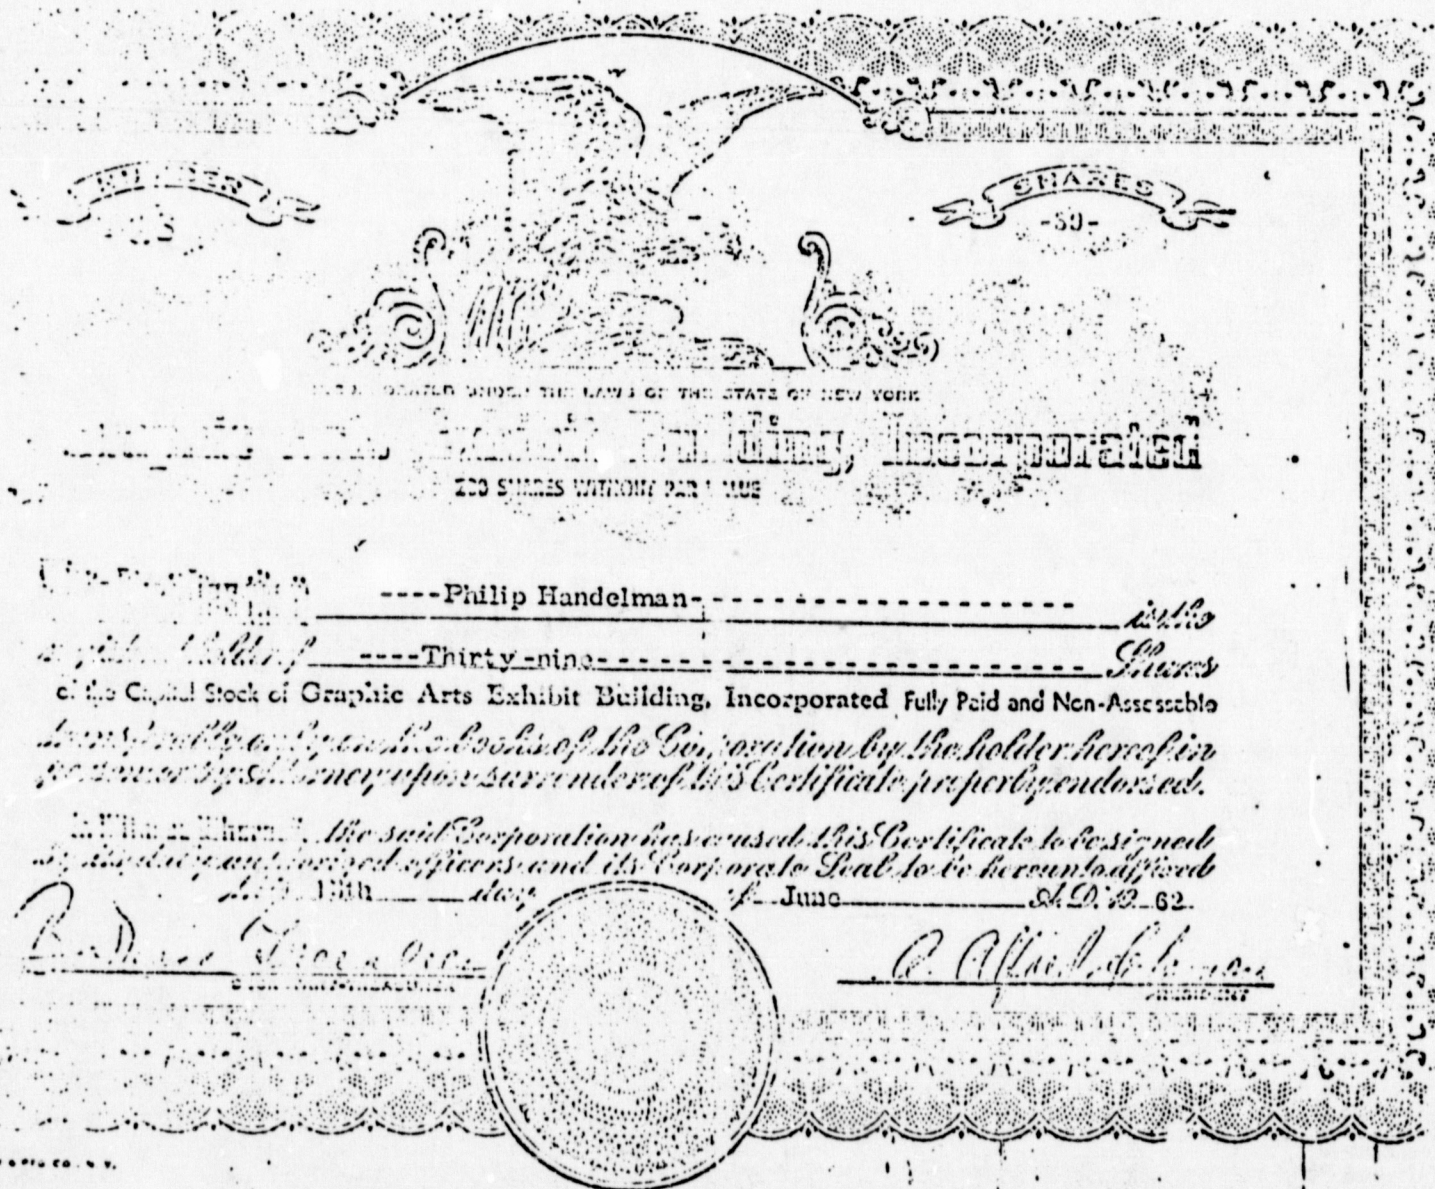 NUMBER
SHARES
-39-
UNDER THE LAWS OF THE STATE OF NEW YORK
Building, Incorporated
200 SHARES WITHOUT PAR VALUE
----Philip Handelman- is the
holder of ----Thirty-nine- Shares
of the Capital Stock of Graphic Arts Exhibit Building, Incorporated Fully Paid and Non-Assessable
transferable only on the books of the Corporation by the holder hereof in
person or by Attorney upon surrender of this Certificate properly endorsed.
In Witness Whereof, the said Corporation has caused this Certificate to be signed
by its duly authorized officers and its Corporate Seal to be hereunto affixed
day of June A.D. 19 62
SECRETARY-TREASURER
PRESIDENT